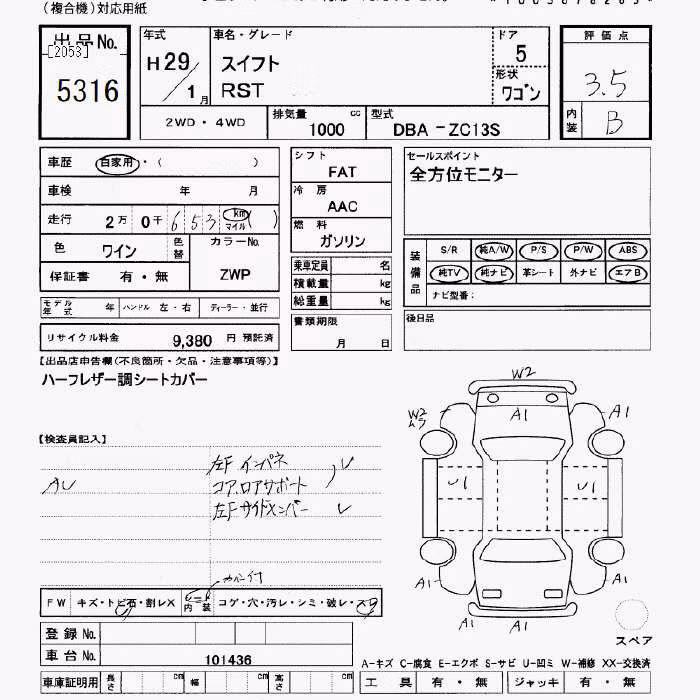 （複合機）対応用紙
出品No.
[2053]
5316
年式
H29/1月
車名・グレード
スイフト
RST
ドア
5
形状
ワゴン
評価点
3.5
内装
B
2WD・4WD
排気量
1000 cc
型式
DBA－ZC13S
車歴 自家用・（ ）
車検 年 月
走行 2万 0千 6 5 3 km マイル ( )
色 ワイン 色替
カラーNo.
ZWP
保証書 有・無
モデル年式 年 ハンドル 左・右 ディーラー・並行
リサイクル料金 9,380 円 預託済
シフト
FAT
冷房
AAC
燃料
ガソリン
乗車定員 名
積載量 kg
総重量 kg
書類期限
月 日
セールスポイント
全方位モニター
装備品
S/R 純A/W P/S P/W ABS
純TV 純ナビ 革シート 外ナビ エアB
ナビ型番：
後日品
【出品店申告欄(不良箇所・欠品・注意事項等)】
ハーフレザー調シートカバー
【検査員記入】
左F インパネ
コアロアサポート
左Fサイドメンバー
AU
W2
A1
W2
ムラ
A1
U1
U1
A1
A1
A1
A1
スペア
カバー付
FW キズ・トビ石・割レX シート内装 コゲ・穴・汚レ・シミ・破レ・スレ
登録No.
車台No. 101436
車庫証明用 長さ cm 幅 cm 高さ cm
A－キズ C－腐食 E－エクボ S－サビ U－凹ミ W－補修 XX－交換済
工具 有・無 ジャッキ 有・無